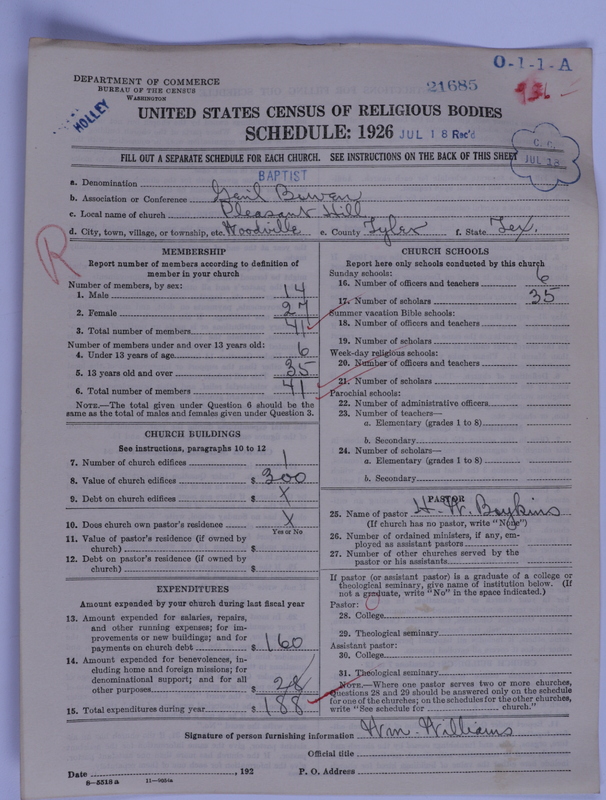 O-1-1-A
DEPARTMENT OF COMMERCE
BUREAU OF THE CENSUS
WASHINGTON
21685
HOLLEY
UNITED STATES CENSUS OF RELIGIOUS BODIES
SCHEDULE: 1926 JUL 18 Rec'd
C. C.
JUL 28
FILL OUT A SEPARATE SCHEDULE FOR EACH CHURCH. SEE INSTRUCTIONS ON THE BACK OF THIS SHEET
BAPTIST
a. Denomination
b. Association or Conference Gail Bowen
c. Local name of church Pleasant Hill
d. City, town, village, or township, etc. Woodville e. County Tyler f. State Tex.
R
MEMBERSHIP
Report number of members according to definition of
member in your church
Number of members, by sex:
1. Male 14
2. Female 27
3. Total number of members 41
Number of members under and over 13 years old:
4. Under 13 years of age 6
5. 13 years old and over 35
6. Total number of members 41
NOTE.—The total given under Question 6 should be the
same as the total of males and females given under Question 3.
CHURCH BUILDINGS
See instructions, paragraphs 10 to 12
7. Number of church edifices 1
8. Value of church edifices $ 300
9. Debt on church edifices $ X
10. Does church own pastor's residence X
Yes or No
11. Value of pastor's residence (if owned by
church) $
12. Debt on pastor's residence (if owned by
church) $
EXPENDITURES
Amount expended by your church during last fiscal year
13. Amount expended for salaries, repairs,
and other running expenses; for im-
provements or new buildings; and for
payments on church debt $ 160
14. Amount expended for benevolences, in-
cluding home and foreign missions; for
denominational support; and for all
other purposes $ 28
15. Total expenditures during year $ 188
CHURCH SCHOOLS
Report here only schools conducted by this church
Sunday schools:
16. Number of officers and teachers 6
17. Number of scholars 35
Summer vacation Bible schools:
18. Number of officers and teachers
19. Number of scholars
Week-day religious schools:
20. Number of officers and teachers
21. Number of scholars
Parochial schools:
22. Number of administrative officers
23. Number of teachers—
a. Elementary (grades 1 to 8)
b. Secondary
24. Number of scholars—
a. Elementary (grades 1 to 8)
b. Secondary
PASTOR
25. Name of pastor H. W. Boykins
(If church has no pastor, write "None")
26. Number of ordained ministers, if any, em-
ployed as assistant pastors
27. Number of other churches served by the
pastor or his assistants
If pastor (or assistant pastor) is a graduate of a college or
theological seminary, give name of institution below. (If
not a graduate, write "No" in the space indicated.)
Pastor:
28. College
29. Theological seminary
Assistant pastor:
30. College
31. Theological seminary
NOTE.—Where one pastor serves two or more churches,
Questions 28 and 29 should be answered only on the schedule
for one of the churches; on the schedules for the other churches,
write "See schedule for church."
Signature of person furnishing information Wm. Williams
Official title
Date , 192 P. O. Address
8—5518 a 11—9054a